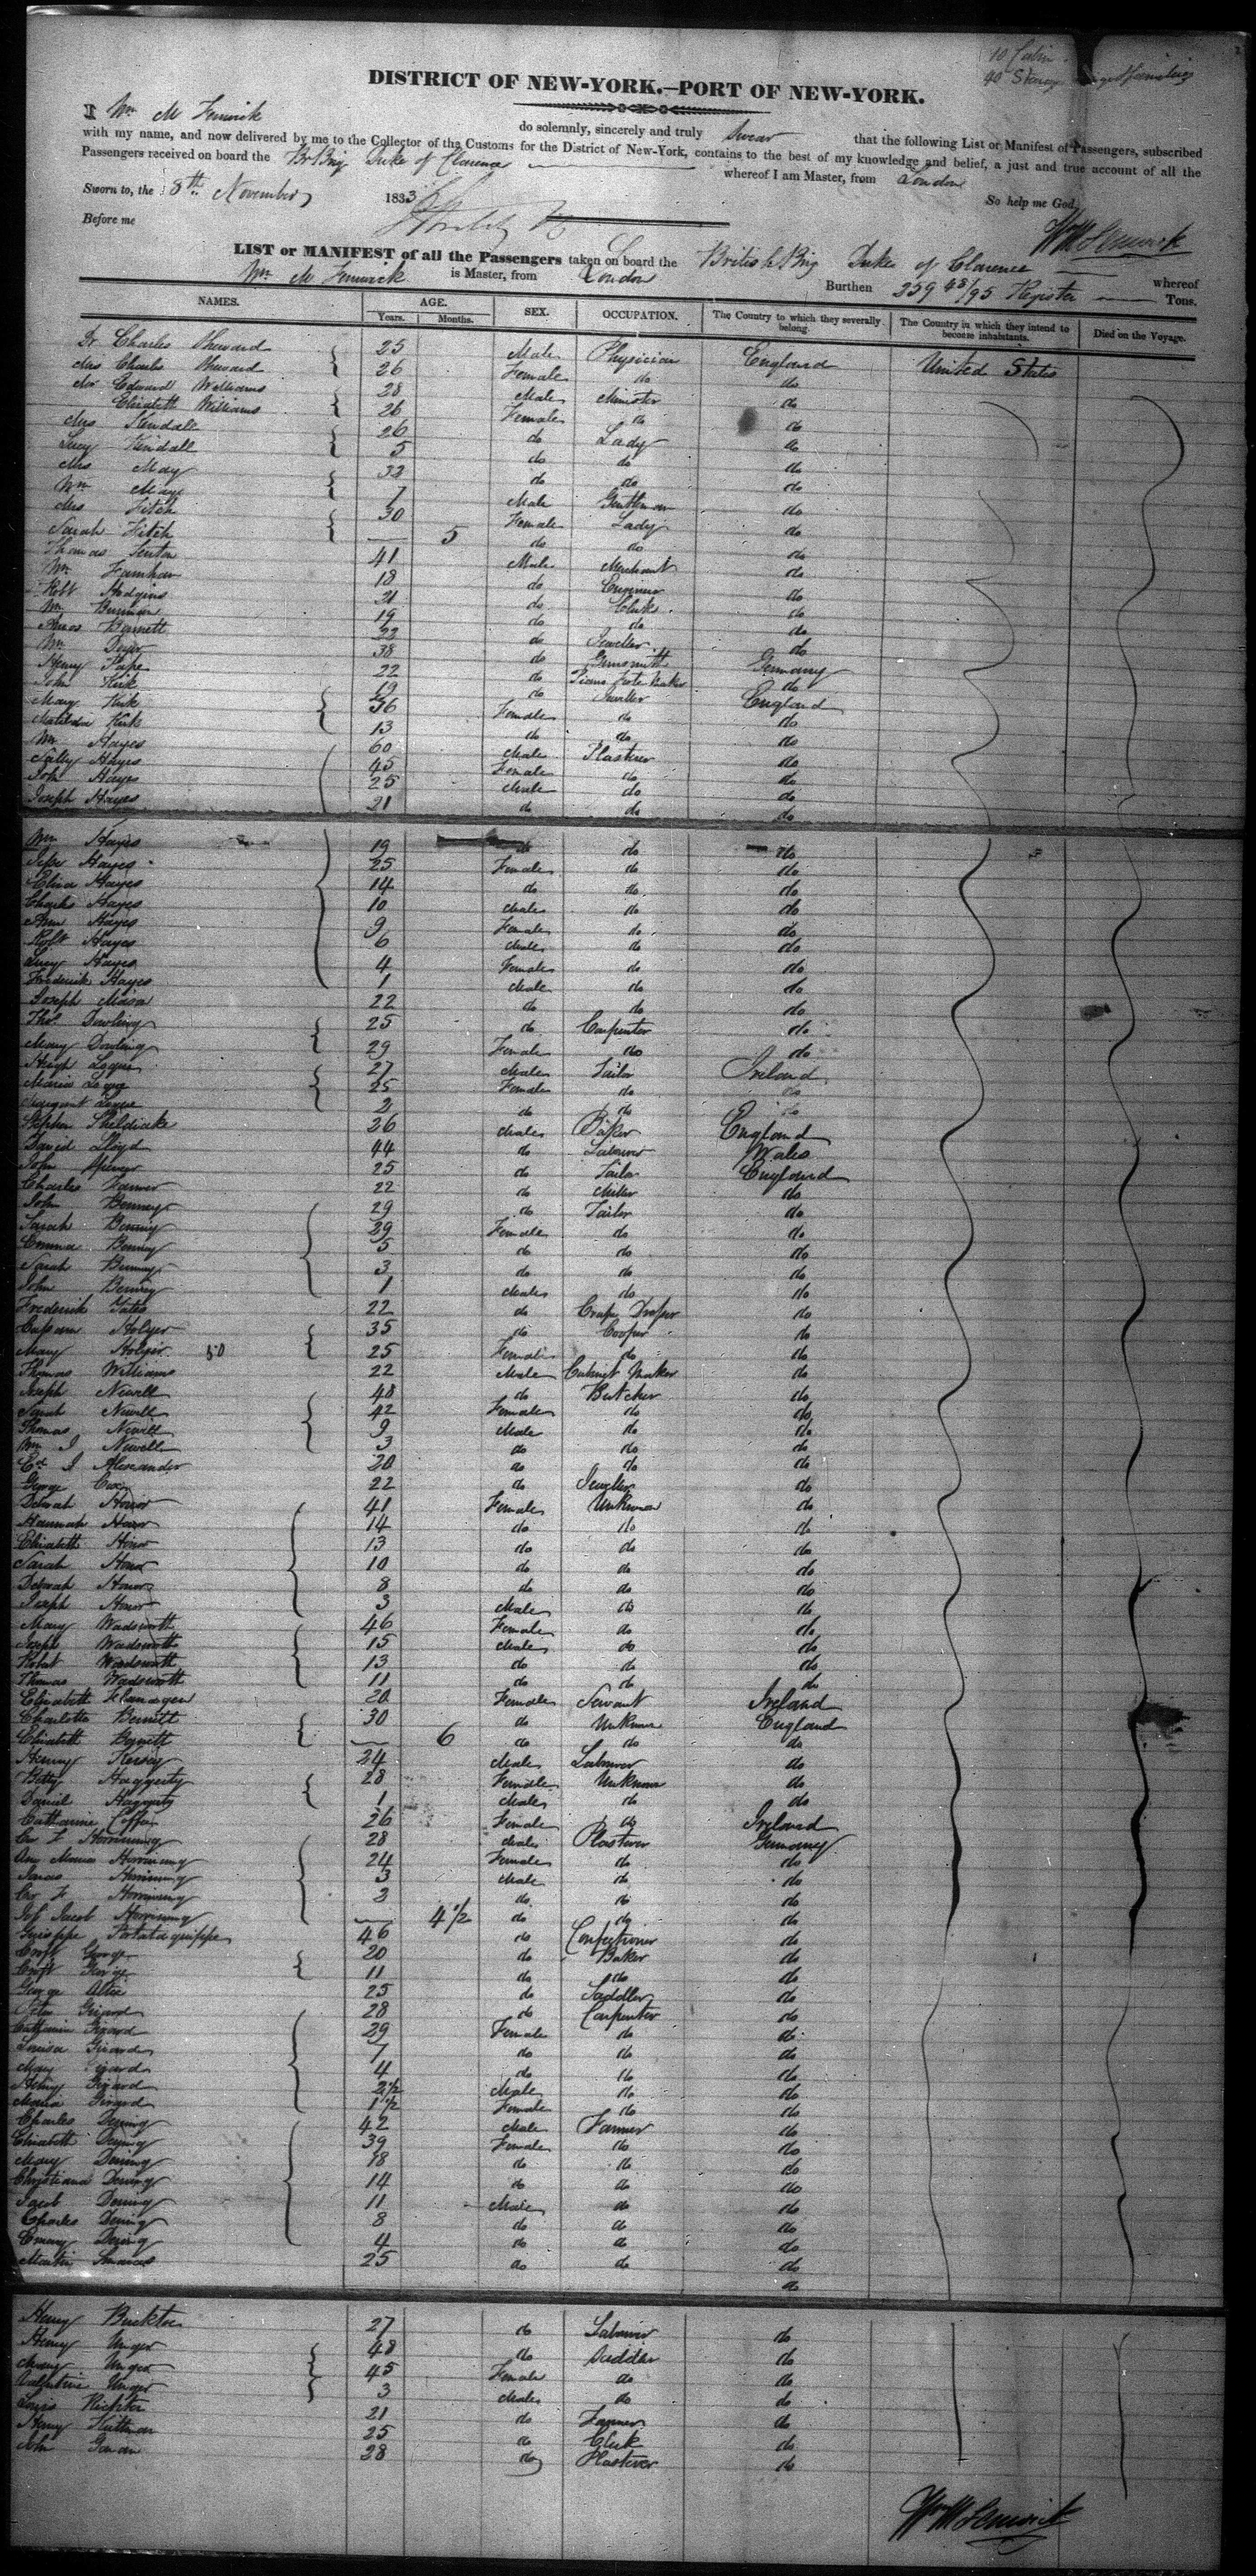 10 Cabin
40 Steerage
DISTRICT OF NEW-YORK.—PORT OF NEW-YORK.
I Wm M Fenwick do solemnly, sincerely and truly Swear that the following List or Manifest of Passengers, subscribed
with my name, and now delivered by me to the Collector of the Customs for the District of New-York, contains to the best of my knowledge and belief, a just and true account of all the
Passengers received on board the Br Brig Duke of Clarence whereof I am Master, from London
Sworn to, the 8th November 1833 So help me God.
Before me Wm M Fenwick
LIST or MANIFEST of all the Passengers taken on board the British Brig Duke of Clarence whereof
Wm M Fenwick is Master, from London Burthen 259 48/95 Register Tons.
NAMES. AGE. SEX. OCCUPATION. The Country to which they severally belong. The Country in which they intend to become inhabitants. Died on the Voyage.
Years. Months.
Dr Charles 25 Male Physician England United States
Mrs Charles 26 Female do do
Mr Edward Williams 28 Male Minister do
Elizabeth Williams 26 Female do do
Mrs Kendall 26 do Lady do
Lucy Kendall 5 do do do
Mrs May 32 do do do
Wm May 7 Male Gentleman do
Mrs Fitch 30 Female Lady do
Sarah Fitch — 5 do do do
Thomas 41 Male Merchant do
Wm Farnham 18 do Engineer do
Robt Hodgins 21 do Clerk do
Wm 19 do do do
Amos Barnett 22 do Jeweller do
Wm 38 do Gunsmith Germany
Henry Pape 22 do Piano Forte Maker do
John Kirk 19 do Jeweller England
Mary Kirk 36 Female do do
Matilda Kirk 13 do do do
Wm Hayes 60 Male Plasterer do
Sally Hayes 45 Female do do
John Hayes 25 Male do do
Joseph Hayes 21 do do do
Wm Hayes 19 do do do
Hayes 25 Female do do
Eliza Hayes 14 do do do
Charles Hayes 10 Male do do
Ann Hayes 9 Female do do
Robt Hayes 6 Male do do
Lucy Hayes 4 Female do do
Frederick Hayes 1 Male do do
Joseph Mason 22 do do do
Thos Dowling 25 do Carpenter do
Mary Dowling 29 Female do do
Hugh 27 Male Tailor Ireland
Maria 25 Female do do
2 do do do
Stephen Sheldrake 26 Male Baker England
David Lloyd 44 do Labourer Wales
John Spencer 25 do Tailor England
Charles 22 do Miller do
John Benney 29 do Tailor do
Sarah Benney 29 Female do do
Emma Benney 5 do do do
Sarah Benney 3 do do do
John Benney 1 Male do do
Frederick Yates 22 do Draper do
Holyer 35 do Cooper do
Mary Holyer 50 25 Female do do
Thomas Williams 22 Male Cabinet Maker do
Joseph Newell 48 do Butcher do
Sarah Newell 42 Female do do
Thomas Newell 9 Male do do
Wm J Newell 3 do do do
Ed J Alexander 20 do do do
George Cox 22 do Jeweller do
Deborah Honor 41 Female Unknown do
Hannah Honor 14 do do do
Elizabeth Honor 13 do do do
Sarah Honor 10 do do do
Deborah Honor 8 do do do
Joseph Honor 3 Male do do
Mary Wadsworth 46 Female do do
Joseph Wadsworth 15 Male do do
Robert Wadsworth 13 do do do
Thomas Wadsworth 11 do do do
Elizabeth Flanagen 20 Female Servant Ireland
Charlotte Bennett 30 do Unknown England
Elizabeth Bennett — 6 do do do
Henry Kersey 24 Male Labourer do
Betty Haggerty 28 Female Unknown do
Daniel Haggerty 1 Male do do
Catharine 26 Female do Ireland
28 Male Plasterer Germany
Ann Maria 24 Female do do
3 Male do do
2 do do do
Jacob — 4½ do do do
Guiseppe 46 do Confectioner do
George 20 do Baker do
George 11 do do do
George 25 do Saddler do
Peter Girard 28 do Carpenter do
Catharine Girard 29 Female do do
Louisa Girard 7 do do do
Mary Girard 4 do do do
Henry Girard 2½ Male do do
Maria Girard 1½ Female do do
Charles Dening 42 Male Farmer do
Elizabeth Dening 39 Female do do
Mary Dening 18 do do do
Christiana Dening 14 do do do
Jacob Dening 11 Male do do
Charles Dening 8 do do do
Dening 4 do do do
Martin 25 do do do
do
Henry 27 do Labourer do
Henry Unger 48 do Saddler do
Mary Unger 45 Female do do
Valentine Unger 3 Male do do
Louis Richter 21 do Farmer do
Henry 25 do Clerk do
John 28 do Plasterer do
Wm M Fenwick